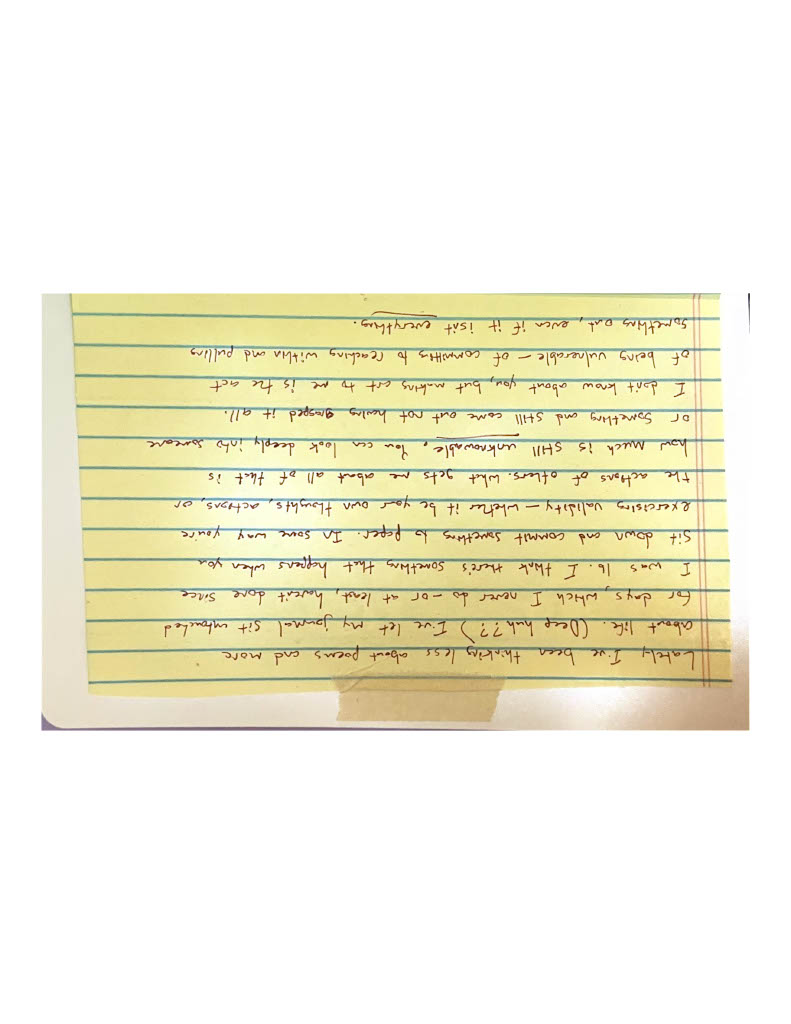 Lately I've been thinking less about poems and more
about life. (Deep huh??) I've let my journal sit untouched
for days, which I never do — or at least, haven't done since
I was 16. I think there's something that happens when you
sit down and commit something to paper. In some way you're
exercising validity — whether it be your own thoughts, actions, or,
the actions of others. What gets me about all of that is
how much is still unknowable. You can look deeply into someone
or something and still come out not having grasped it all.
I don't know about you, but making art to me is the act
of being vulnerable — of committing to reaching within and pulling
something out, even if it isn't everything.